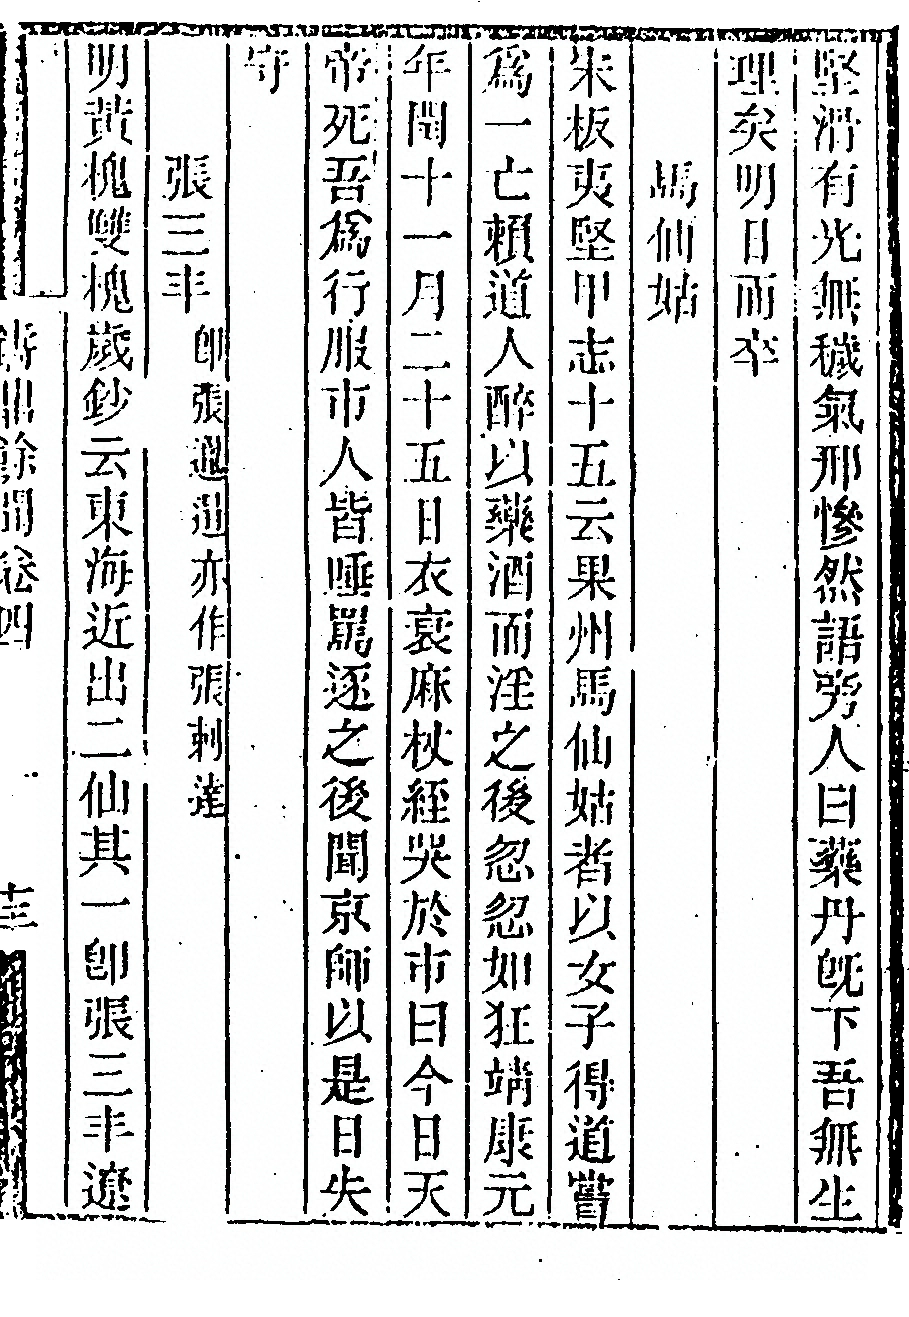 堅滑有光無穢氣邢慘然語旁人曰藥丹旣下吾無生
理矣明日而卒
馬仙姑
朱板夷堅甲志十五云果州馬仙姑者以女子得道嘗
爲一亡賴道人醉以藥酒而淫之後忽忽如狂靖康元
年閏十一月二十五日衣衰麻杖絰哭於市曰今日天
帝死吾爲行服市人皆唾罵逐之後聞京師以是日失
守
張三丰 卽張邋遢亦作張剌達
明黃槐雙槐歲鈔云東海近出二仙其一卽張三丰遼
餘聞卷四
十三